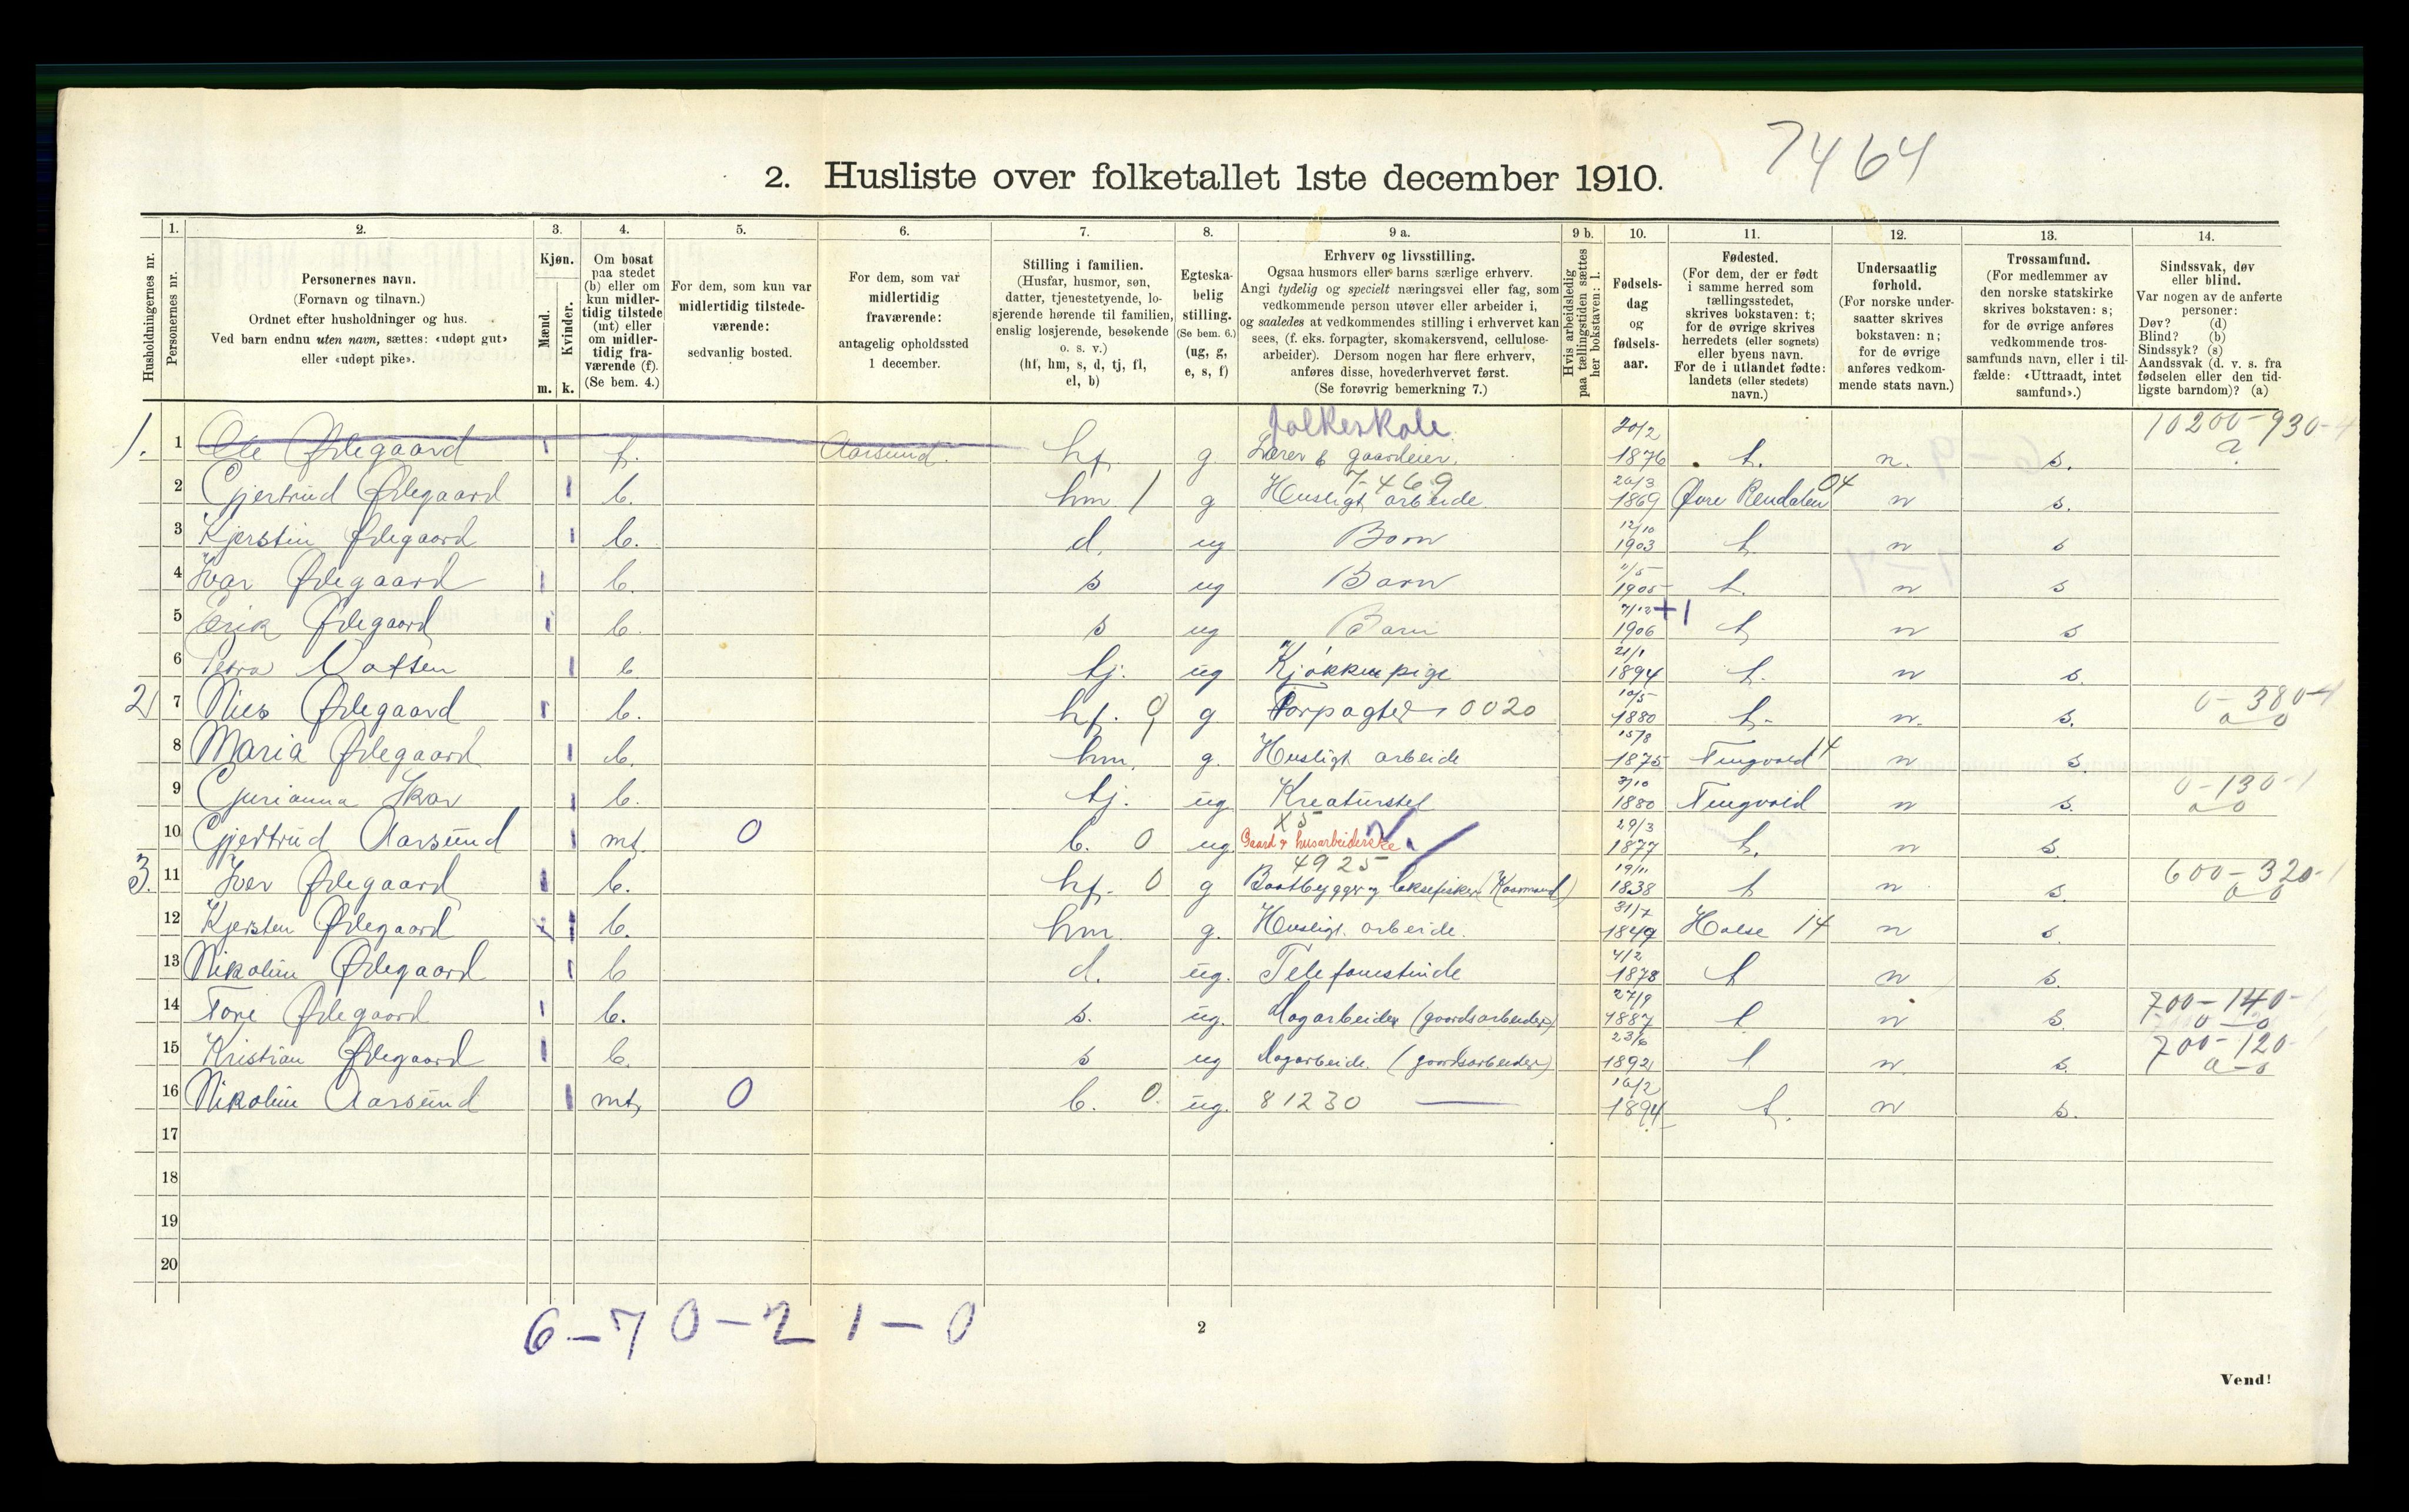 7464
2. Husliste over folketallet 1ste december 1910.
1. 2. 3. 4. 5. 6. 7. 8. 9 a. 9 b. 10. 11. 12. 13. 14.
Husholdningernes nr.
Personernes nr.
Personernes navn.
(Fornavn og tilnavn.)
Ordnet efter husholdninger og hus.
Ved barn endnu uten navn, sættes: «udøpt gut»
eller «udøpt pike».
Kjøn.
Mænd.
Kvinder.
m. k.
Om bosat
paa stedet
(b) eller om
kun midler-
tidig tilstede
(mt) eller
om midler-
tidig fra-
værende (f).
(Se bem. 4.)
For dem, som kun var
midlertidig tilstede-
værende:
sedvanlig bosted.
For dem, som var
midlertidig
fraværende:
antagelig opholdssted
1 december.
Stilling i familien.
(Husfar, husmor, søn,
datter, tjenestetyende, lo-
sjerende hørende til familien,
enslig losjerende, besøkende
o. s. v.)
(hf, hm, s, d, tj, fl,
el, b)
Egteska-
belig
stilling.
(Se bem. 6.)
(ug, g,
e, s, f)
Erhverv og livsstilling.
Ogsaa husmors eller barns særlige erhverv.
Angi tydelig og specielt næringsvei eller fag, som
vedkommende person utøver eller arbeider i,
og saaledes at vedkommendes stilling i erhvervet kan
sees, (f. eks. forpagter, skomakersvend, cellulose-
arbeider). Dersom nogen har flere erhverv,
anføres disse, hovederhvervet først.
(Se forøvrig bemerkning 7.)
Hvis arbeidsledig
paa tællingstiden sættes
her bokstaven: l.
Fødsels-
dag
og
fødsels-
aar.
Fødested.
(For dem, der er født
i samme herred som
tællingsstedet,
skrives bokstaven: t;
for de øvrige skrives
herredets (eller sognets)
eller byens navn.
For de i utlandet fødte:
landets (eller stedets)
navn.)
Undersaatlig
forhold.
(For norske under-
saatter skrives
bokstaven: n;
for de øvrige
anføres vedkom-
mende stats navn.)
Trossamfund.
(For medlemmer av
den norske statskirke
skrives bokstaven: s;
for de øvrige anføres
vedkommende tros-
samfunds navn, eller i til-
fælde: «Uttraadt, intet
samfund».)
Sindssvak, døv
eller blind.
Var nogen av de anførte
personer:
Døv? (d)
Blind? (b)
Sindssyk? (s)
Aandssvak (d. v. s. fra
fødselen eller den tid-
ligste barndom)? (a)
folkeskole 20/2 10200-930-4
1. 1 Ole Ødegaard f. Aarsund. hf. g Lærer & gaardeier. 1876 t. n. s.
7469 20/3 04
2 Gjertrud Ødegaard b. hm 1 g Husligt arbeide. 1869 Øvre Rendalen n s.
12/10
3 Kjerstin Ødegaard b. d. ug Barn 1903 t. n s
11/5
4 Ivar Ødegaard b. s ug Barn 1905 t. n s
7/12 +1
5 Erik Ødegaard b. s ug Barn 1906 t n s
21/1
6 Petra b tj. ug Kjøkkenpige 1894 t. n s.
10/5 0-380-1
2) 7 Nils Ødegaard b. hf. g Forpagter 0020 1880 t. n. s.
15/8
8 Maria Ødegaard b. hm. g. Husligt arbeide 1875 Tingvold 14 n s.
3/10 0-130-1
9 Gurianna Skar b. tj. ug. Kreaturstel 1880 Tingvold n s.
X5 29/3
10 Gjertrud Aarsund mt. 0 b. 0 ug. Gaard & husarbeiderske 1877 t. n s.
4925 19/11 600-320-1
3. 11 Iver Ødegaard b. hf. 0 g Baatbygger og laksefisker (Kaarmand) 1838 t n s.
31/7
12 Kjersten Ødegaard b. hm. g. Husligt arbeide. 1849 Halse 14 n s.
4/2
13 Nikoline Ødegaard b d. ug. Telefonistinde 1878 t n s.
27/9 700-140-
14 Tore Ødegaard b. s. ug. Dagarbeider (gaardsarbeider) 1887 t n s.
23/6 700-120-
15 Kristian Ødegaard b. s ug Dagarbeide. (gaardsarbeider) 1892 t n. s.
16/2
16 Nikoline Aarsund mt. 0 b. 0. ug. 81230 1894 t. n s.
17
18
19
20
6-70-21-0
2
Vend!